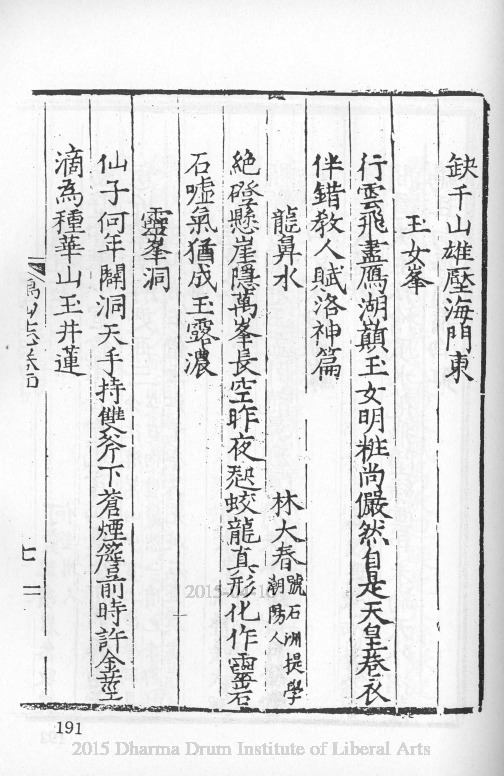 缺千山雄壓海門東
玉女峯
行雲飛盡鴈湖巔玉女明粧尚儼然自是天皇養衣
伴錯教人賦洛神篇
龍鼻水
林大春號石洲提學潮陽人
絕磴懸崖隱萬峯長空昨夜起蛟龍真形化作靈岩
石噓氣猶成玉露濃
靈峯洞
仙子何年闢洞天手持雙斧下蒼煙簷前時許金莖
滴為種華山玉井蓮
鴈山志卷四
七一
191
2015-04-10
2015 Dharma Drum Institute of Liberal Arts